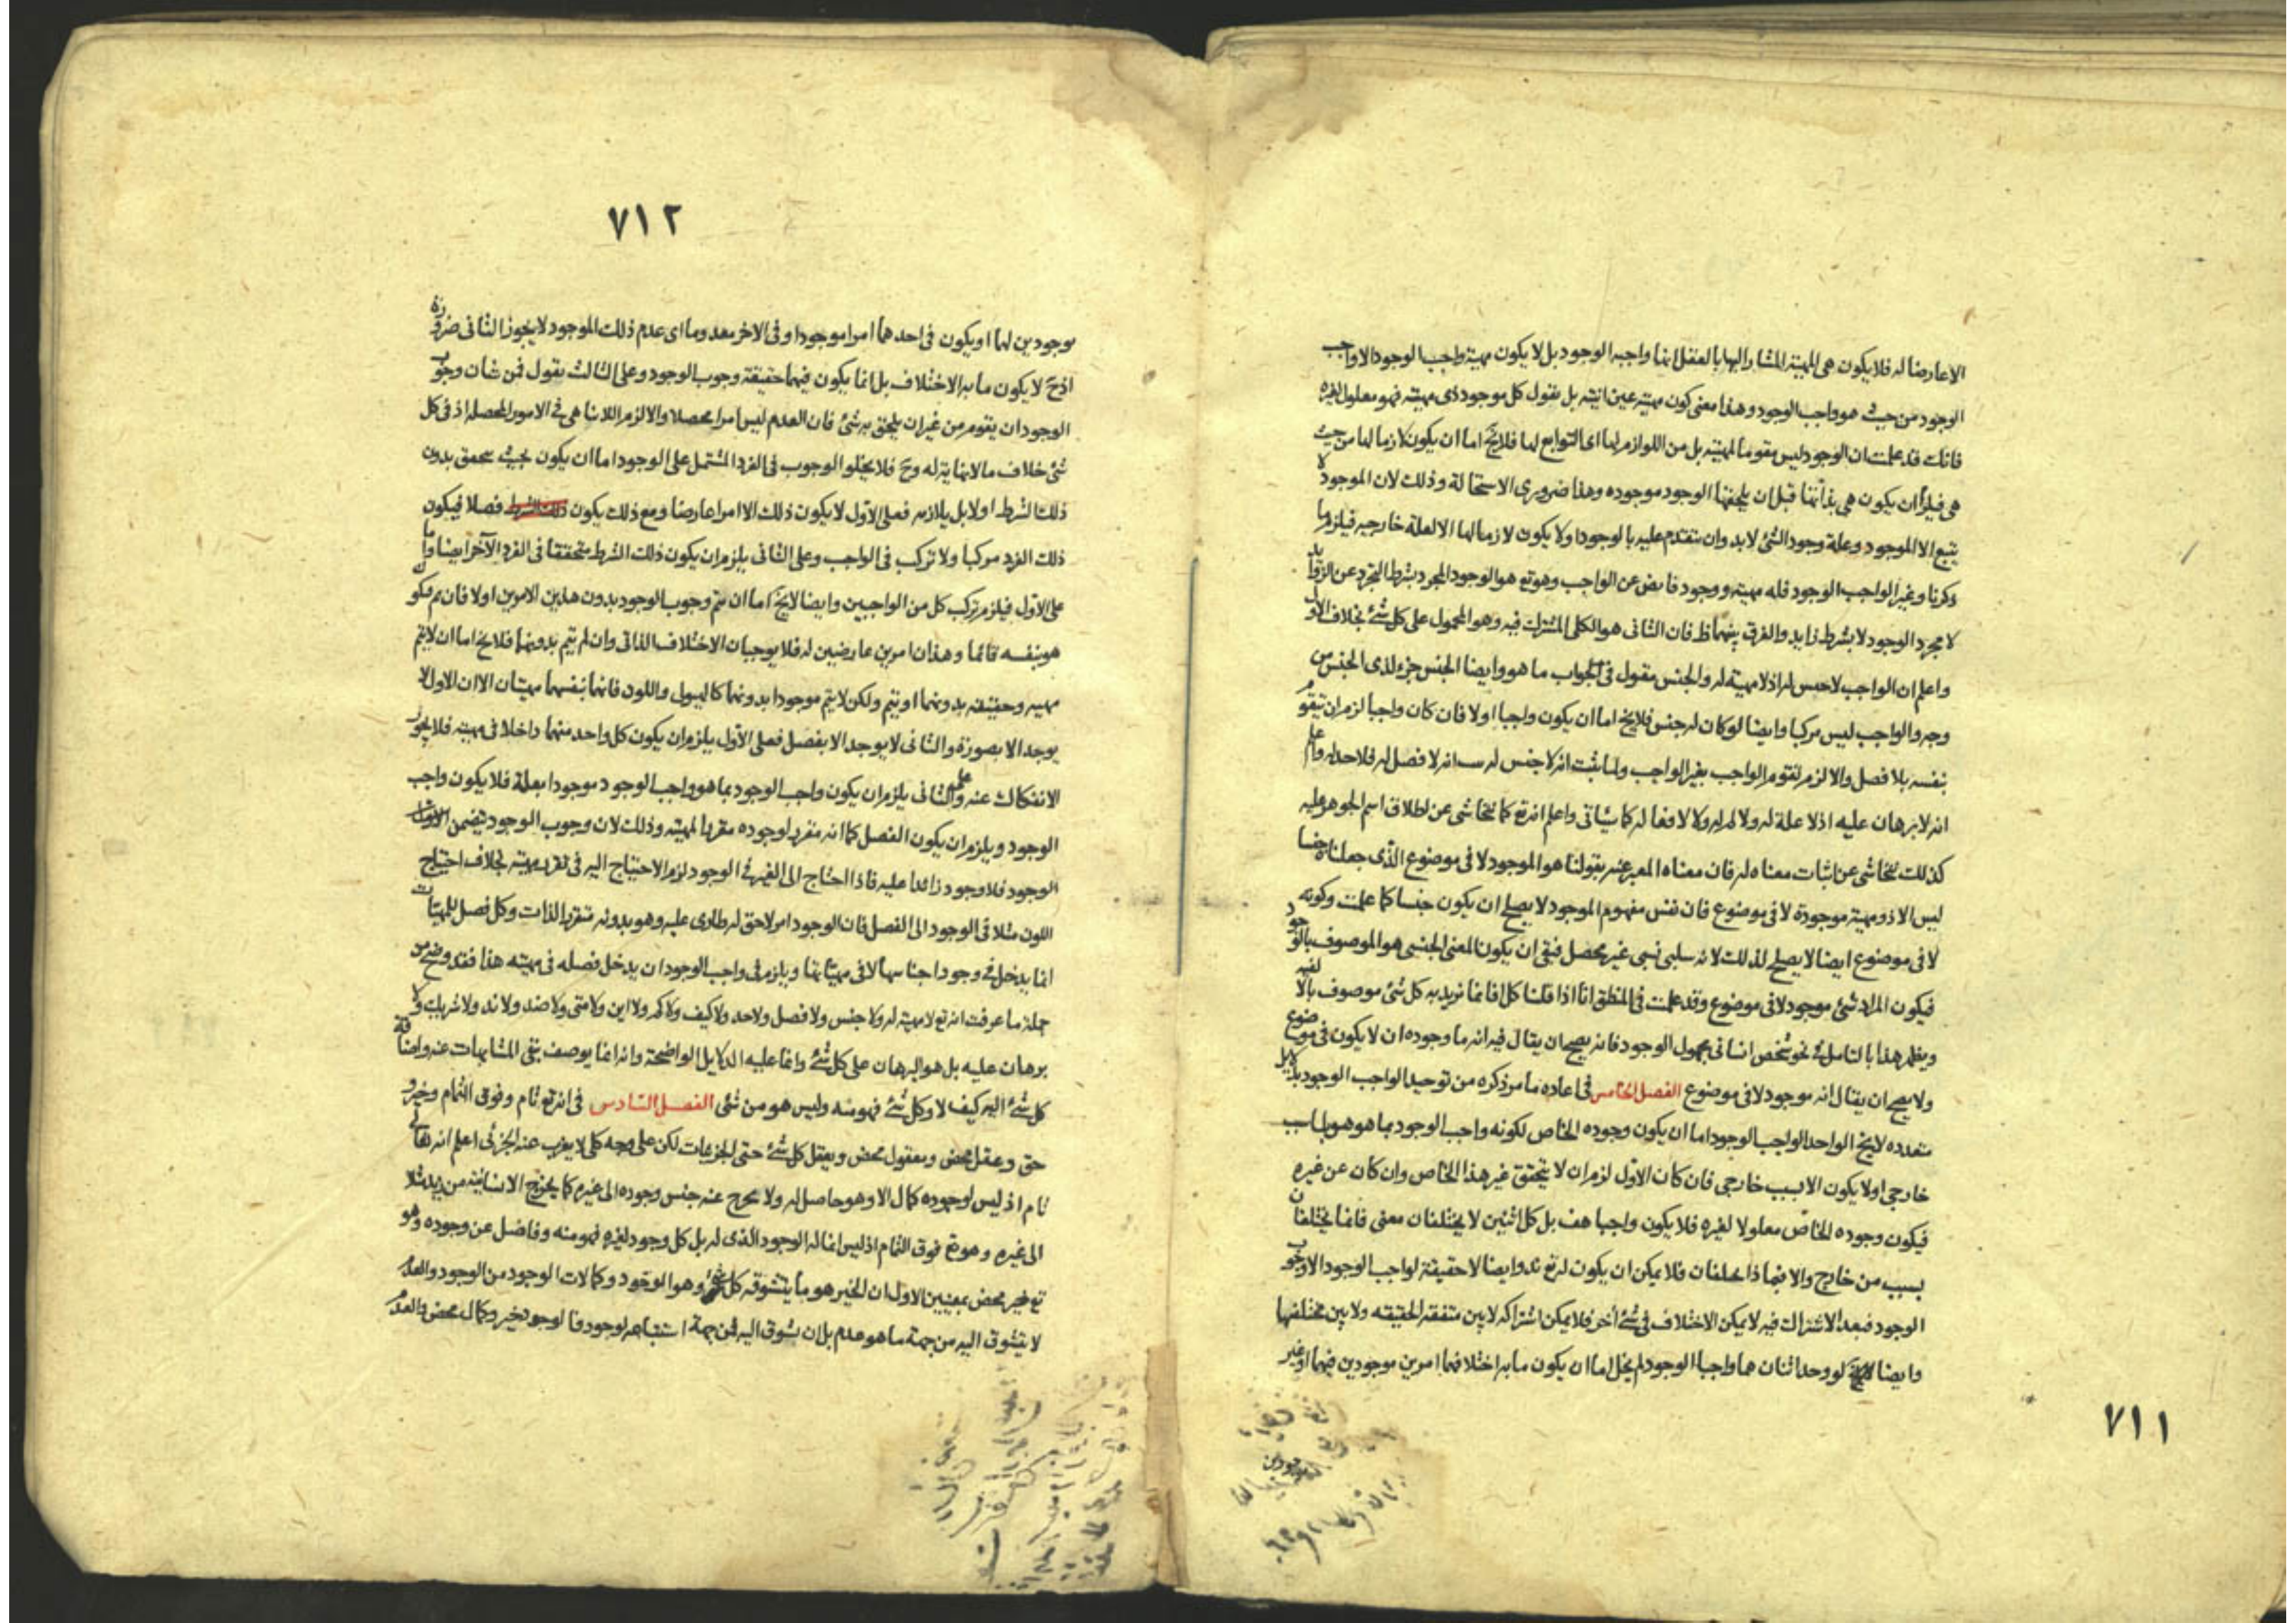 الاعارضا له فلا يكون هى المهية المشار اليها بالعقل انها واجبه الوجود بل لا يكون مهية واجب الوجود الا واجب
الوجود من حيث هو واجب الوجود وهذا معنى كون مهيته عين انيته بل نقول كل موجود ذى مهيته فهو معلول لغيره
فانك قد علمت ان الوجود ليس مقوما للمهية بل من اللوازم لها اى التوابع لها فلا يخ اما ان يكون لازما لها من حيث
هى فيلزم ان يكون هى بذاتها قبل ان يلحقها الوجود موجوده وهذا ضرورى الاستحالة وذلك لان الموجود لا
يتبع الا الموجود وعلة وجود الشئ لا بد وان يتقدم عليه بالوجود اولا يكون لازما لها الا لعلة خارجيه فيلزم ما
ذكرنا وغير الواجب الوجود فله مهية ووجود فايض عن الواجب وهو تع هو الوجود المجرد بشرط التجرد عن الزوايد
لا مجرد الوجود لا بشرط زايد والفرق بينهما ظ فان الثانى هو الكلى المشترك فيه وهو المحمول على كل شئ بخلاف الاول
واعلم ان الواجب لا جنس له اذ لا مهية له والجنس مقول فى الجواب ما هو وايضا الجنس جزء لذى الجنس من
وجه والواجب ليس مركبا وايضا لو كان له جنس فلا يخ اما ان يكون واجبا اولا فان كان واجبا لزم ان يتقوم
بنفسه بلا فصل والا لزم تقوم الواجب بغير الواجب ولما ثبت انه لا جنس له انه لا فصل له فلا حد له واعلم
انه لا برهان عليه اذ لا علة له ولا لم له ولا لافعاله كما سيأتى واعلم انه تع كما يتحاشى عن اطلاق اسم الجوهر عليه
كذلك يتحاشى عن اثبات معناه له فان معناه المعبر عنه بقولنا هو الموجود لا فى موضوع الذى جعلناه جنسا
ليس الا ذو مهية موجودة لا فى موضوع فان نفس مفهوم الموجود لا يصلح ان يكون جنسا كما علمت وكونه
لا فى موضوع ايضا لا يصلح لذلك لانه سلبى نسبى غير محصل فبقى ان يكون المعنى الجنسى هو الموصوف بالوجود
فيكون المراد شئ موجود لا فى موضوع وقد علمت فى المنطق انا اذا قلنا كل اف انما نريد به كل شئ موصوف بالالفيه
ويظهر هذا بالتامل فى نحو شخص انسانى مجهول الوجود فانه يصح ان يقال فيه انه ما وجوده ان لا يكون فى موضوع
ولا يصح ان يقال انه موجود لا فى موضوع الفصل الخامس فى اعاده ما مر ذكره من توحيد الواجب الوجود بدلايل
متعدده لا يخ الواحد الواجب الوجود اما ان يكون وجوده الخاص لكونه واجب الوجود بما هو هو بلا سبب
خارجى اولا يكون الا بسبب خارجى فان كان الاول لزم ان لا يتحقق غير هذا الخاص وان كان عن غيره
فيكون وجوده الخاص معلولا لغيره فلا يكون واجبا هف بل كل اثنين لا يختلفان معنى فانما يختلفان
بسبب من خارج والا فما ذا يختلفان فلا يمكن ان يكون له تع ند وايضا لا حقيقة لواجب الوجود الا وجوب
الوجود فبعد الاشتراك فيه لا يمكن الاختلاف فى شئ اخر فلا يمكن اشتراكه لا بين متفقه الحقيقه ولا بين مختلفتها
وايضا لو وجد اثنان هما واجبا الوجود لم يخل اما ان يكون ما به اختلافهما امرين موجودين فيهما او غير
موجودين
٧١١
٧١٢
موجودين لهما او يكون فى احدهما امرا موجودا وفى الاخر معدوما اى عدم ذلك الموجود لا يجوز الثانى ضرورة
اذ ح لا يكون ما به الاختلاف بل انما يكون فيهما حقيقة وجوب الوجود وعلى الثالث يقول فمن شان وجوب
الوجود ان يقوم من غير ان يلحق به شئ فان العدم ليس امرا محصلا والا لزم اللاتناهى فى الامور المحصله اذ فى كل
شئ خلاف ما لا نهاية له وح فلا يخلوا لوجوب فى الفرد المشتمل على الوجود اما ان يكون بحيث يتحقق بدون
ذلك الشرط اولا بل يلازمه فعلى الاول لا يكون ذلك الا امرا عارضا ومع ذلك يكون ذلك الشرط فصلا فيكون
ذلك الفرد مركبا ولا تركب فى الواجب وعلى الثانى يلزم ان يكون ذلك الشرط متحققا فى الفرد الآخر ايضا واما
على الاول فيلزم تركب كل من الواجبين وايضا لا يخ اما ان يتم وجوب الوجود بدون هذين الامرين اولا فان تم فيكون
هو بنفسه قائما وهذان امرين عارضين له فلا يوجبان الاختلاف الذاتى وان لم يتم بدونهما فلا يخ اما ان لا يتم
مهيته وحقيقته بدونهما او يتم ولكن لا يتم موجودا بدونهما كالهيولى واللون فانهما بنفسهما مهيتان الا ان الاول لا
يوجد الا بصورة والثانى لا يوجد الا بفصل فعلى الاول يلزم ان يكون كل واحد منهما داخلا فى مهيته فلا يجوز
الانفكاك عنه وعلى الثانى يلزم ان يكون واجب الوجود بما هو واجب الوجود موجودا بعلة فلا يكون واجب
الوجود ويلزم ان يكون الفصل كما انه مفرد لوجوده مقررا لمهيته وذلك لان وجوب الوجود يتضمن
الوجود فلا وجود زائدا عليه فاذا احتاج الى الغير فى الوجود لزم الاحتياج اليه فى تقرر مهيته بخلاف احتياج
اللون مثلا فى الوجود الى الفصل فان الوجود امر لاحق له طارى عليه وهو بدونه متقرر الذات وكل فصل للمهيات
انما يدخل فى وجود اجناسها لا فى مهياتها ويلزم فى واجب الوجود ان يدخل فصله فى مهيته هذا فقد وضح من
جملة ما عرفت انه تع لا مهية له ولا جنس ولا فصل ولا حد ولا كيف ولا كم ولا اين ولا متى ولا ضد ولا ند ولا شريك ولا
برهان عليه بل هو البرهان على كل شئ وانما عليه الدلايل الواضحة وانه انما يوصف بنفى المشابهات عنه واضافة
كل شئ اليه كيف لا وكل شئ فهو منه وليس هو من شئ الفصل السادس فى انه تع تام وفوق التمام وخير و
حق وعقل محض ومعقول محض ويعقل كل شئ حتى الجزئيات لكن على وجه كلى لا يعزب عنه الجزئى اعلم انه تعالى
تام اذ ليس لوجوده كمال الا وهو حاصل له ولا يخرج عنه جنس وجوده الى غيره كما يخرج الانسانية من زيد مثلا
الى غيره وهو تع فوق التمام اذ ليس انما له الوجود الذى له بل كل وجود لغيره فهو منه وفاضل عن وجوده وهو
تع خير محض بمعنيين الاول ان الخير هو ما يتشوقه كل شئ وهو الوجود وكمالات الوجود من الوجود والعدم
لا يتشوق اليه من جهة ما هو عدم بل ان يتشوق اليه فمن جهة استتباعه لوجود فالوجود خير وكمال محض والعدم